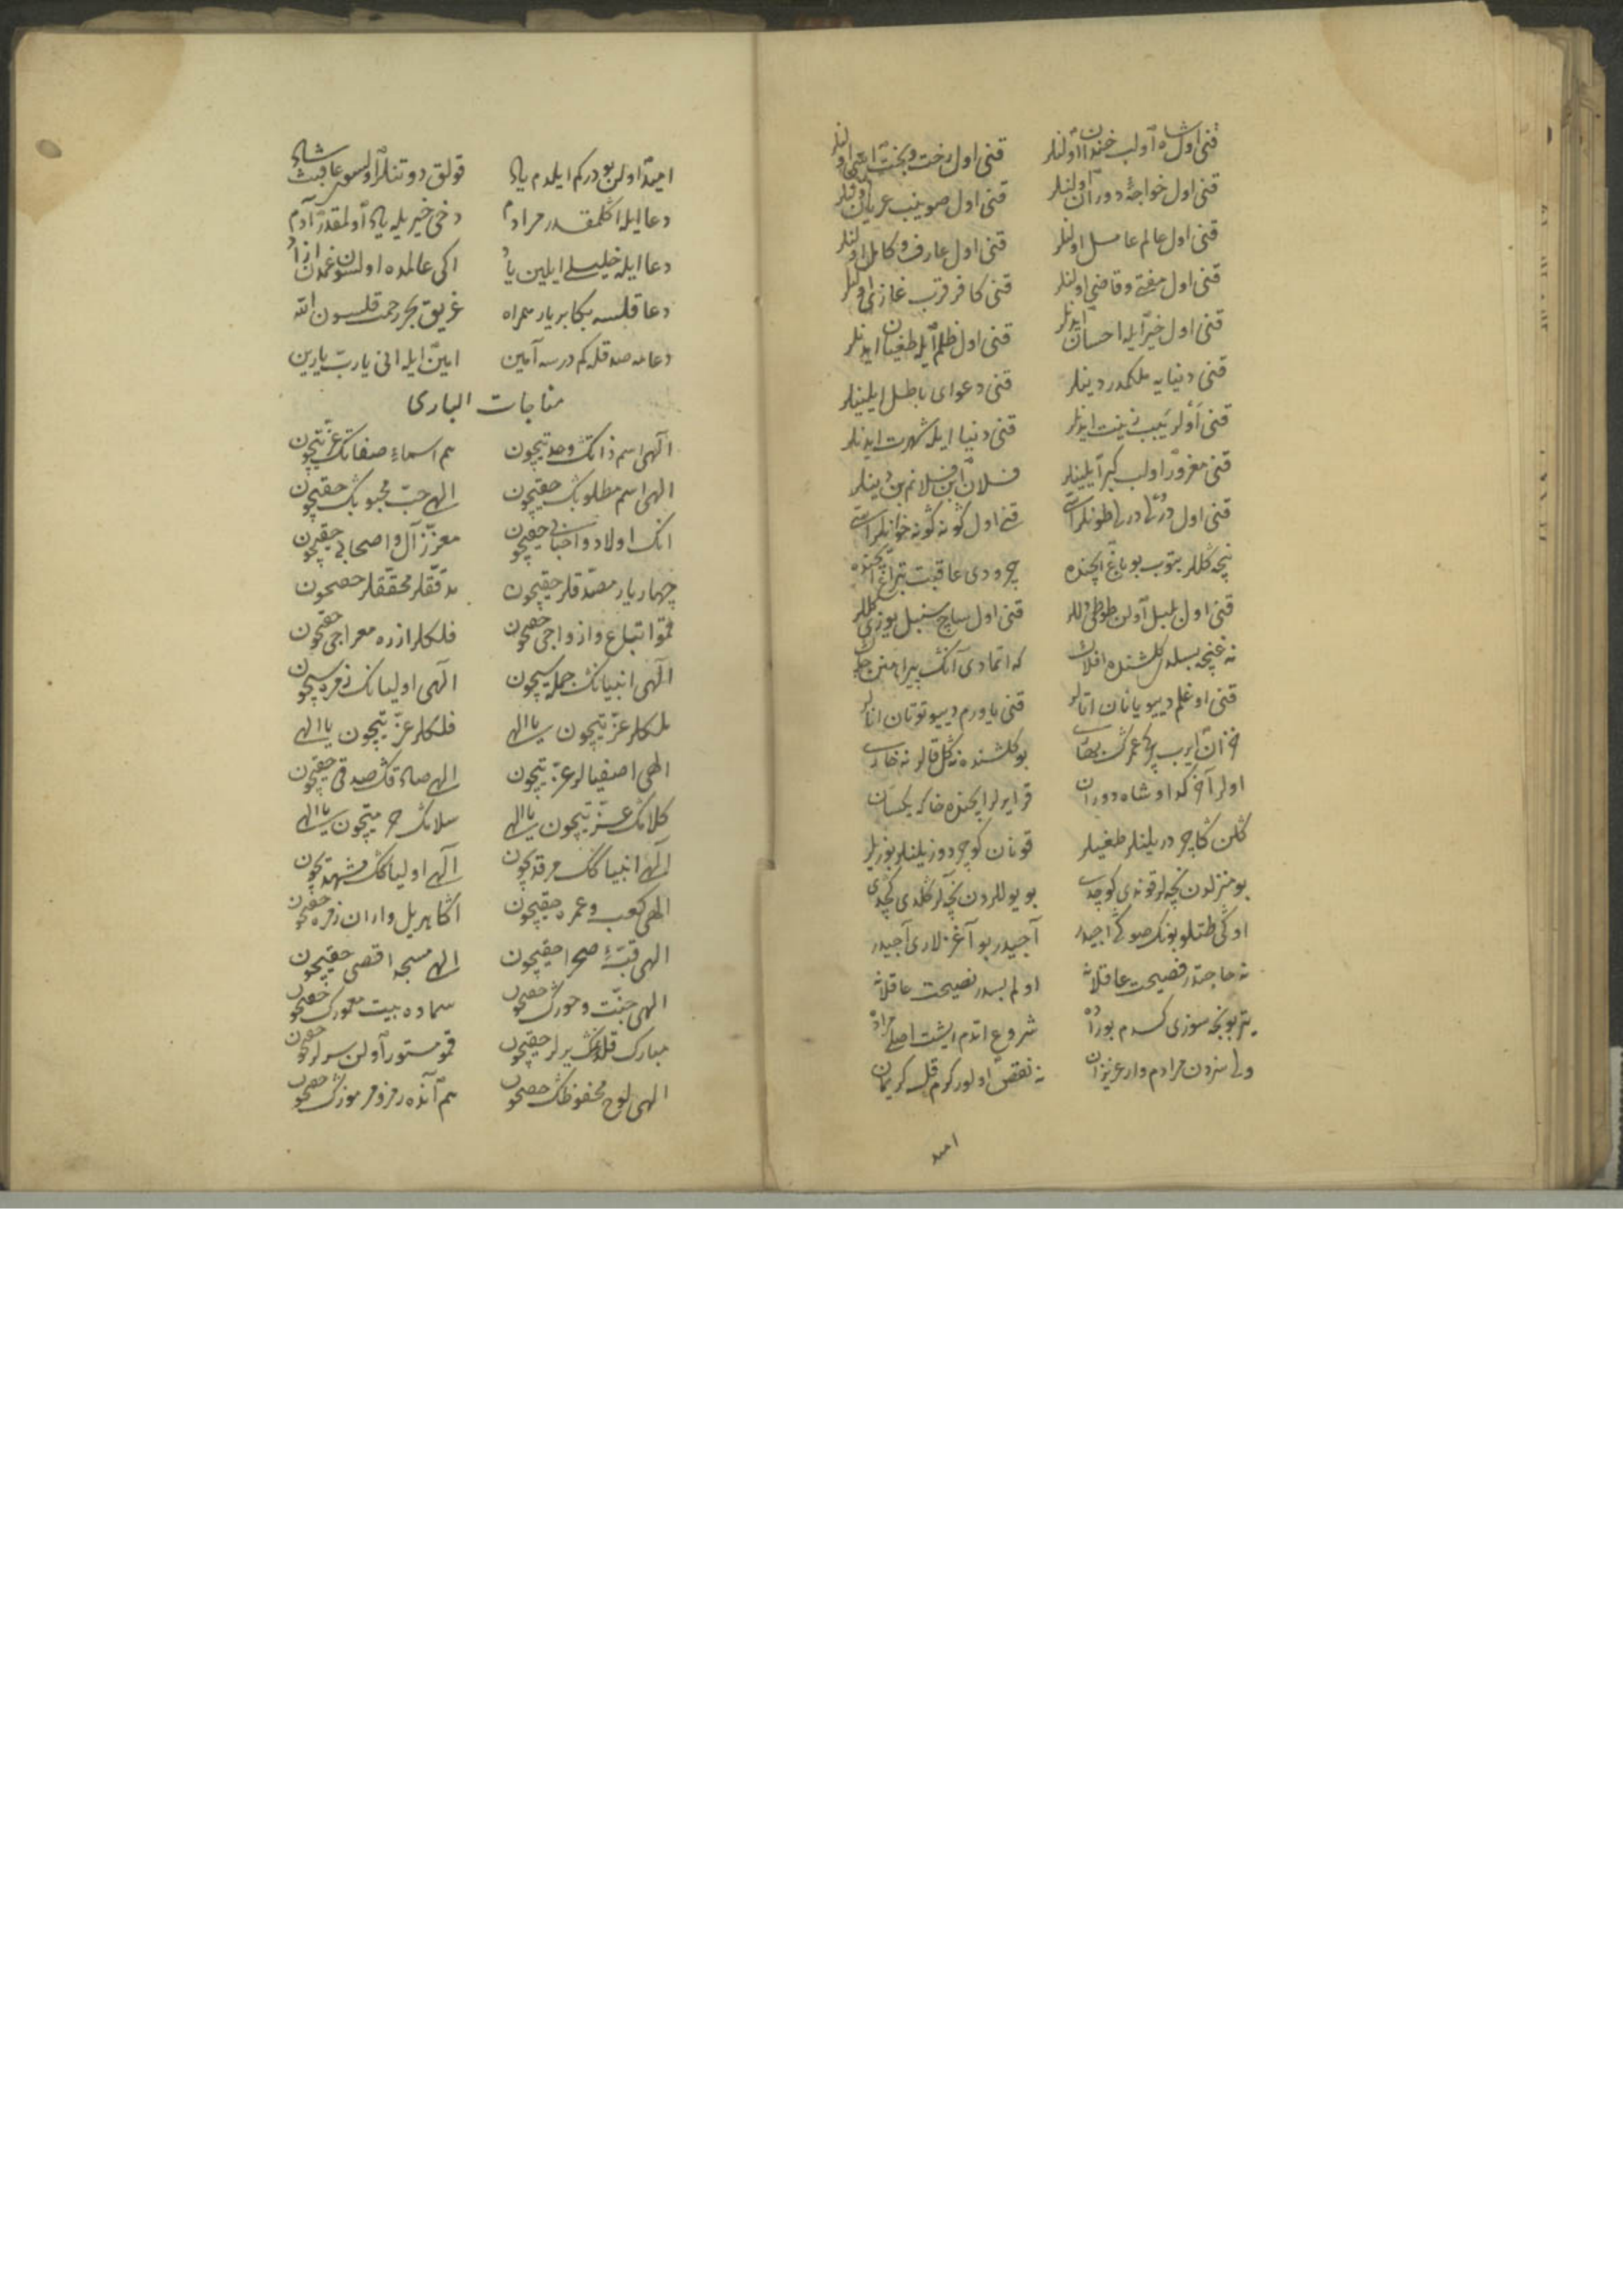 قنى اول شاه اولب خندان اولنلر قنى اول رخت و بخت اولنلر
قنى اول خواجهٔ دوران اولنلر قنى اول صوینب عریان اولنلر
قنى اول عالم عامل اولنلر قنى اول عارف و كامل اولنلر
قنى اول مفتى و قاضى اولنلر قنى كافر قرب غازى اولنلر
قنى اول خیر ایله احسان ایدنلر قنى اول ظلم ایله طغیان ایدنلر
قنى دنیایه ملكمدر دینلر قنى دعواى باطل ایلینلر
قنى اولر یپب زینت ایدنلر قنى دنیا ایله شهرت ایدنلر
قنى مغرور اولب كبر ایلینلر فلان ابن فلانم بن دینلر
قنى اول درلى درلى طونلر قنى اول كونه كونه خوانلر
نیچه كللر بتوب بو باغ ایچنده چرودى عاقبت تپراغ ایچنده
قنى اول بلبل اولن طوطى دللر قنى اول ساچى سنبل یوزى كللر
نه غنچه بسلدى كلشنده افلاك كه اتمادى آنك پیراهنن چاك
قنى اوغلم دییو یانان اتالر قنى یاورم دییو توتان انالر
بو كلشنده نه كل قالور نه خار
اولر آخر كدا و شاه دوران قرا یرلر ایچنده خاك یكسان
كلن كاچر دریلنلر طغیلر قونان كوچر دوزیلنلر بوزیلر
بو منزلدن نیچه لر قوندى كوچدى بو یوللردن نیچه لر كلدى كچدى
اوكى طتلو بونك صوكى اجیدر آجیدر بو آغزلارى آجیدر
نه حاجتدر فصیحت عاقلانه اولم بسدر نصیحت عاقلانه
یتر بونجه سوزى كسدم بوراده شروع اتدم ایشت اصلى مراده
ولى سزدن مرادم وار عزیزان نه نقص اولور كرم قل كریمان
امید
امید اولن بودركم ایلدم یاد قولق دوتنلر اولسون عاقبت شاد
دعا ایله اكلمقدر مرادم دخى خیریله یاد اولمقدر آدم
دعا ایله خلیلى ایلین یاد اكى عالمده اولسون غمدن ازاد
دعا قلسه بكا بر یار همراه غریق بحر رحمت قلسون الله
دعامه صدقله كم درسه آمین امین ایله انى یا رب یارین
مناجات البارى
الهى اسم ذاتك وحدتیچون هم اسماء صفاتك عزتیچون
الهى اسم مطلوبك حقیچون الهى حب محبوبك حقیچون
انك اولاد و احبابى حقیچون معزز آل و اصحابى حقیچون
چهار یار مصدقلر حقیچون مدققلر محققلر حقیچون
قمو اتباع و ازواجى حقیچون فلكلر ازره معراجى حقیچون
الهى انبیانك جمله سیچون الهى اولیانك زمره سیچون
ملكلر عزتیچون یا الهى فلكلر عزتیچون یا الهى
الهى اصفیالر عزتیچون الهى صادقك صدقى حقیچون
كلامك عزتیچون یا الهى سلامك حرمتیچون یا الهى
الهى انبیا كك مرقدیچون الهى اولیا كك مشهدیچون
الهى كعبه و عمره حقیچون اكا هر یل واران زمره حقیچون
الهى قبهٔ صحرا حقیچون الهى مسجد اقصى حقیچون
الهى جنت و حورك حقیچون سماده بیت معمورك حقیچون
مبارك قلدغك یرلر حقیچون قمو مستور اولن سرلر حقیچون
الهى لوح محفوظك حقیچون هم آنده رمز مرموزك حقیچون